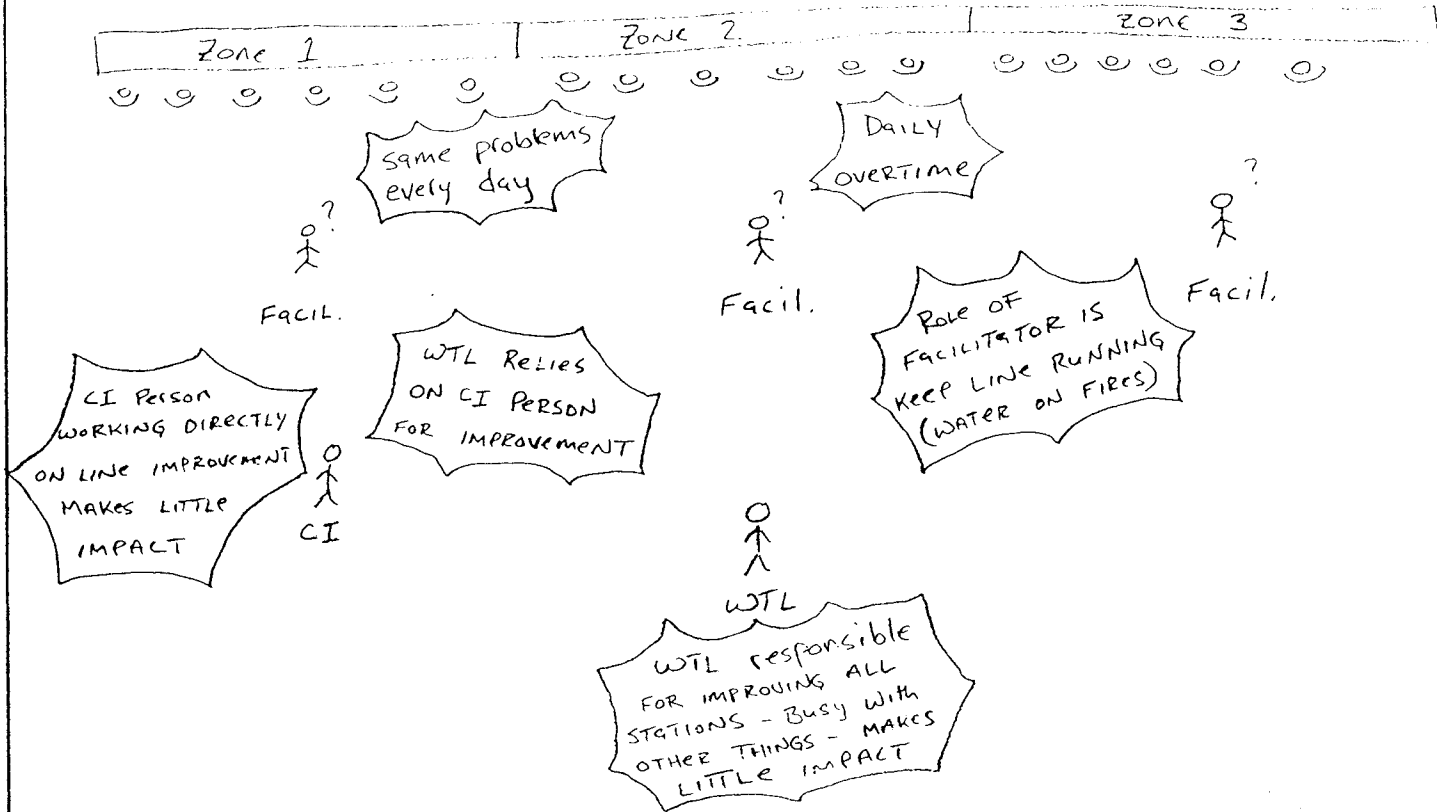 Zone 1
Zone 2
Zone 3
same problems
every day
Daily
overtime
?
?
?
Facil.
Facil.
Facil.
CI Person
working directly
on line improvement
makes little
impact
CI
WTL Relies
on CI Person
for improvement
Role of
Facilitator is
keep line running
(water on fires)
WTL
WTL responsible
for improving all
stations - Busy with
other things - makes
little impact